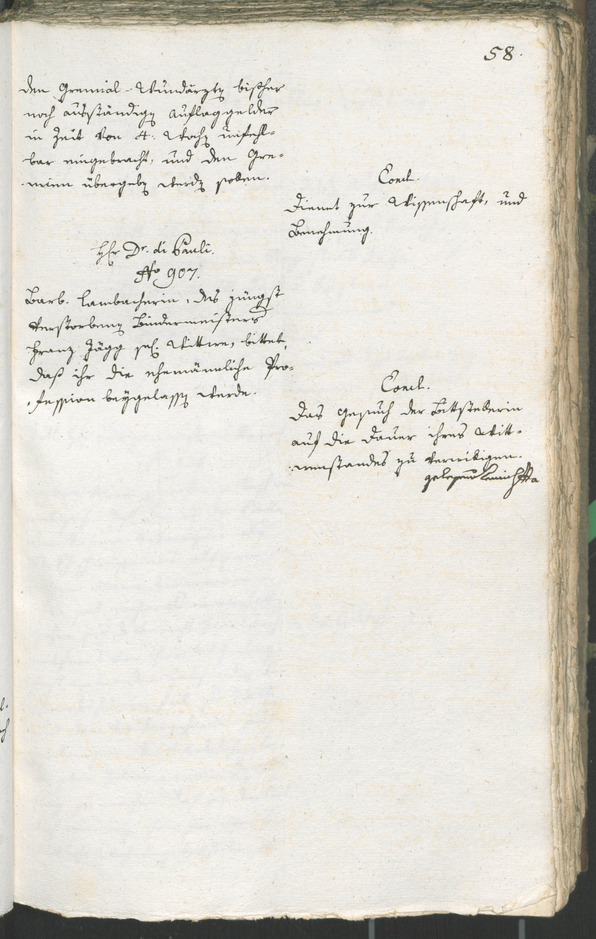 58.
den Gremial-Wundärzten bisher
noch ausständigen Auflaggelder
in Zeit von 4. Wochen unfehl-
bar eingebracht, und den Gre-
mien übergeben werden sollen.
Concl.
Dienet zur Wissenschaft, und
Benehmung.
H. Dr. di Pauli.
No 907.
Barb. Lambacherin, des jüngst
verstorbenen Bindermeisters
Franz Jägg sel. Wittwe, bittet,
daß ihr die ehemännliche Pro-
fession beygelassen werde.
Concl.
Das Gesuch der Bittstellerin
auf die Dauer ihres Witt-
wenstandes zu verwilligen.